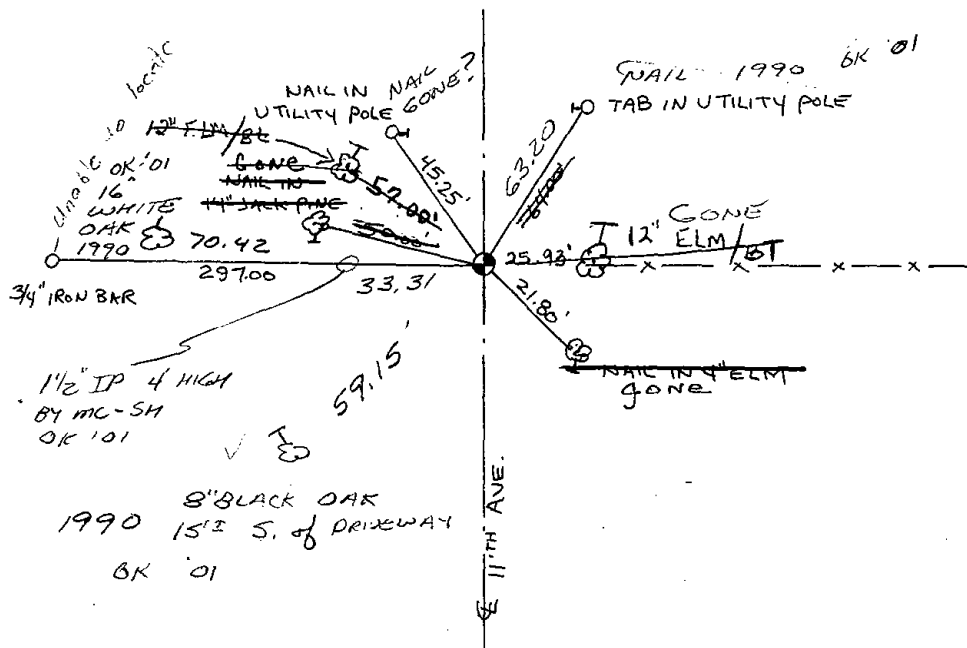 Unable to locate
NAIL IN NAIL
UTILITY POLE GONE?
NAIL 1990 OK '01
TAB IN UTILITY POLE
12" ELM/BT
GONE
NAIL IN
14" JACK PINE
OK '01
16"
WHITE
OAK
1990
70.42
57.00'
50.00'
45.25'
63.20
GONE
12" ELM/BT
25.93'
297.00
33.31
3/4" IRON BAR
21.80'
NAIL IN 4" ELM
gone
1 1/2" IP 4' HIGH
BY MC-SH
OK '01
59.15'
8" BLACK OAK
1990 15'± S. of DRIVEWAY
OK '01
℄ 11'TH AVE.